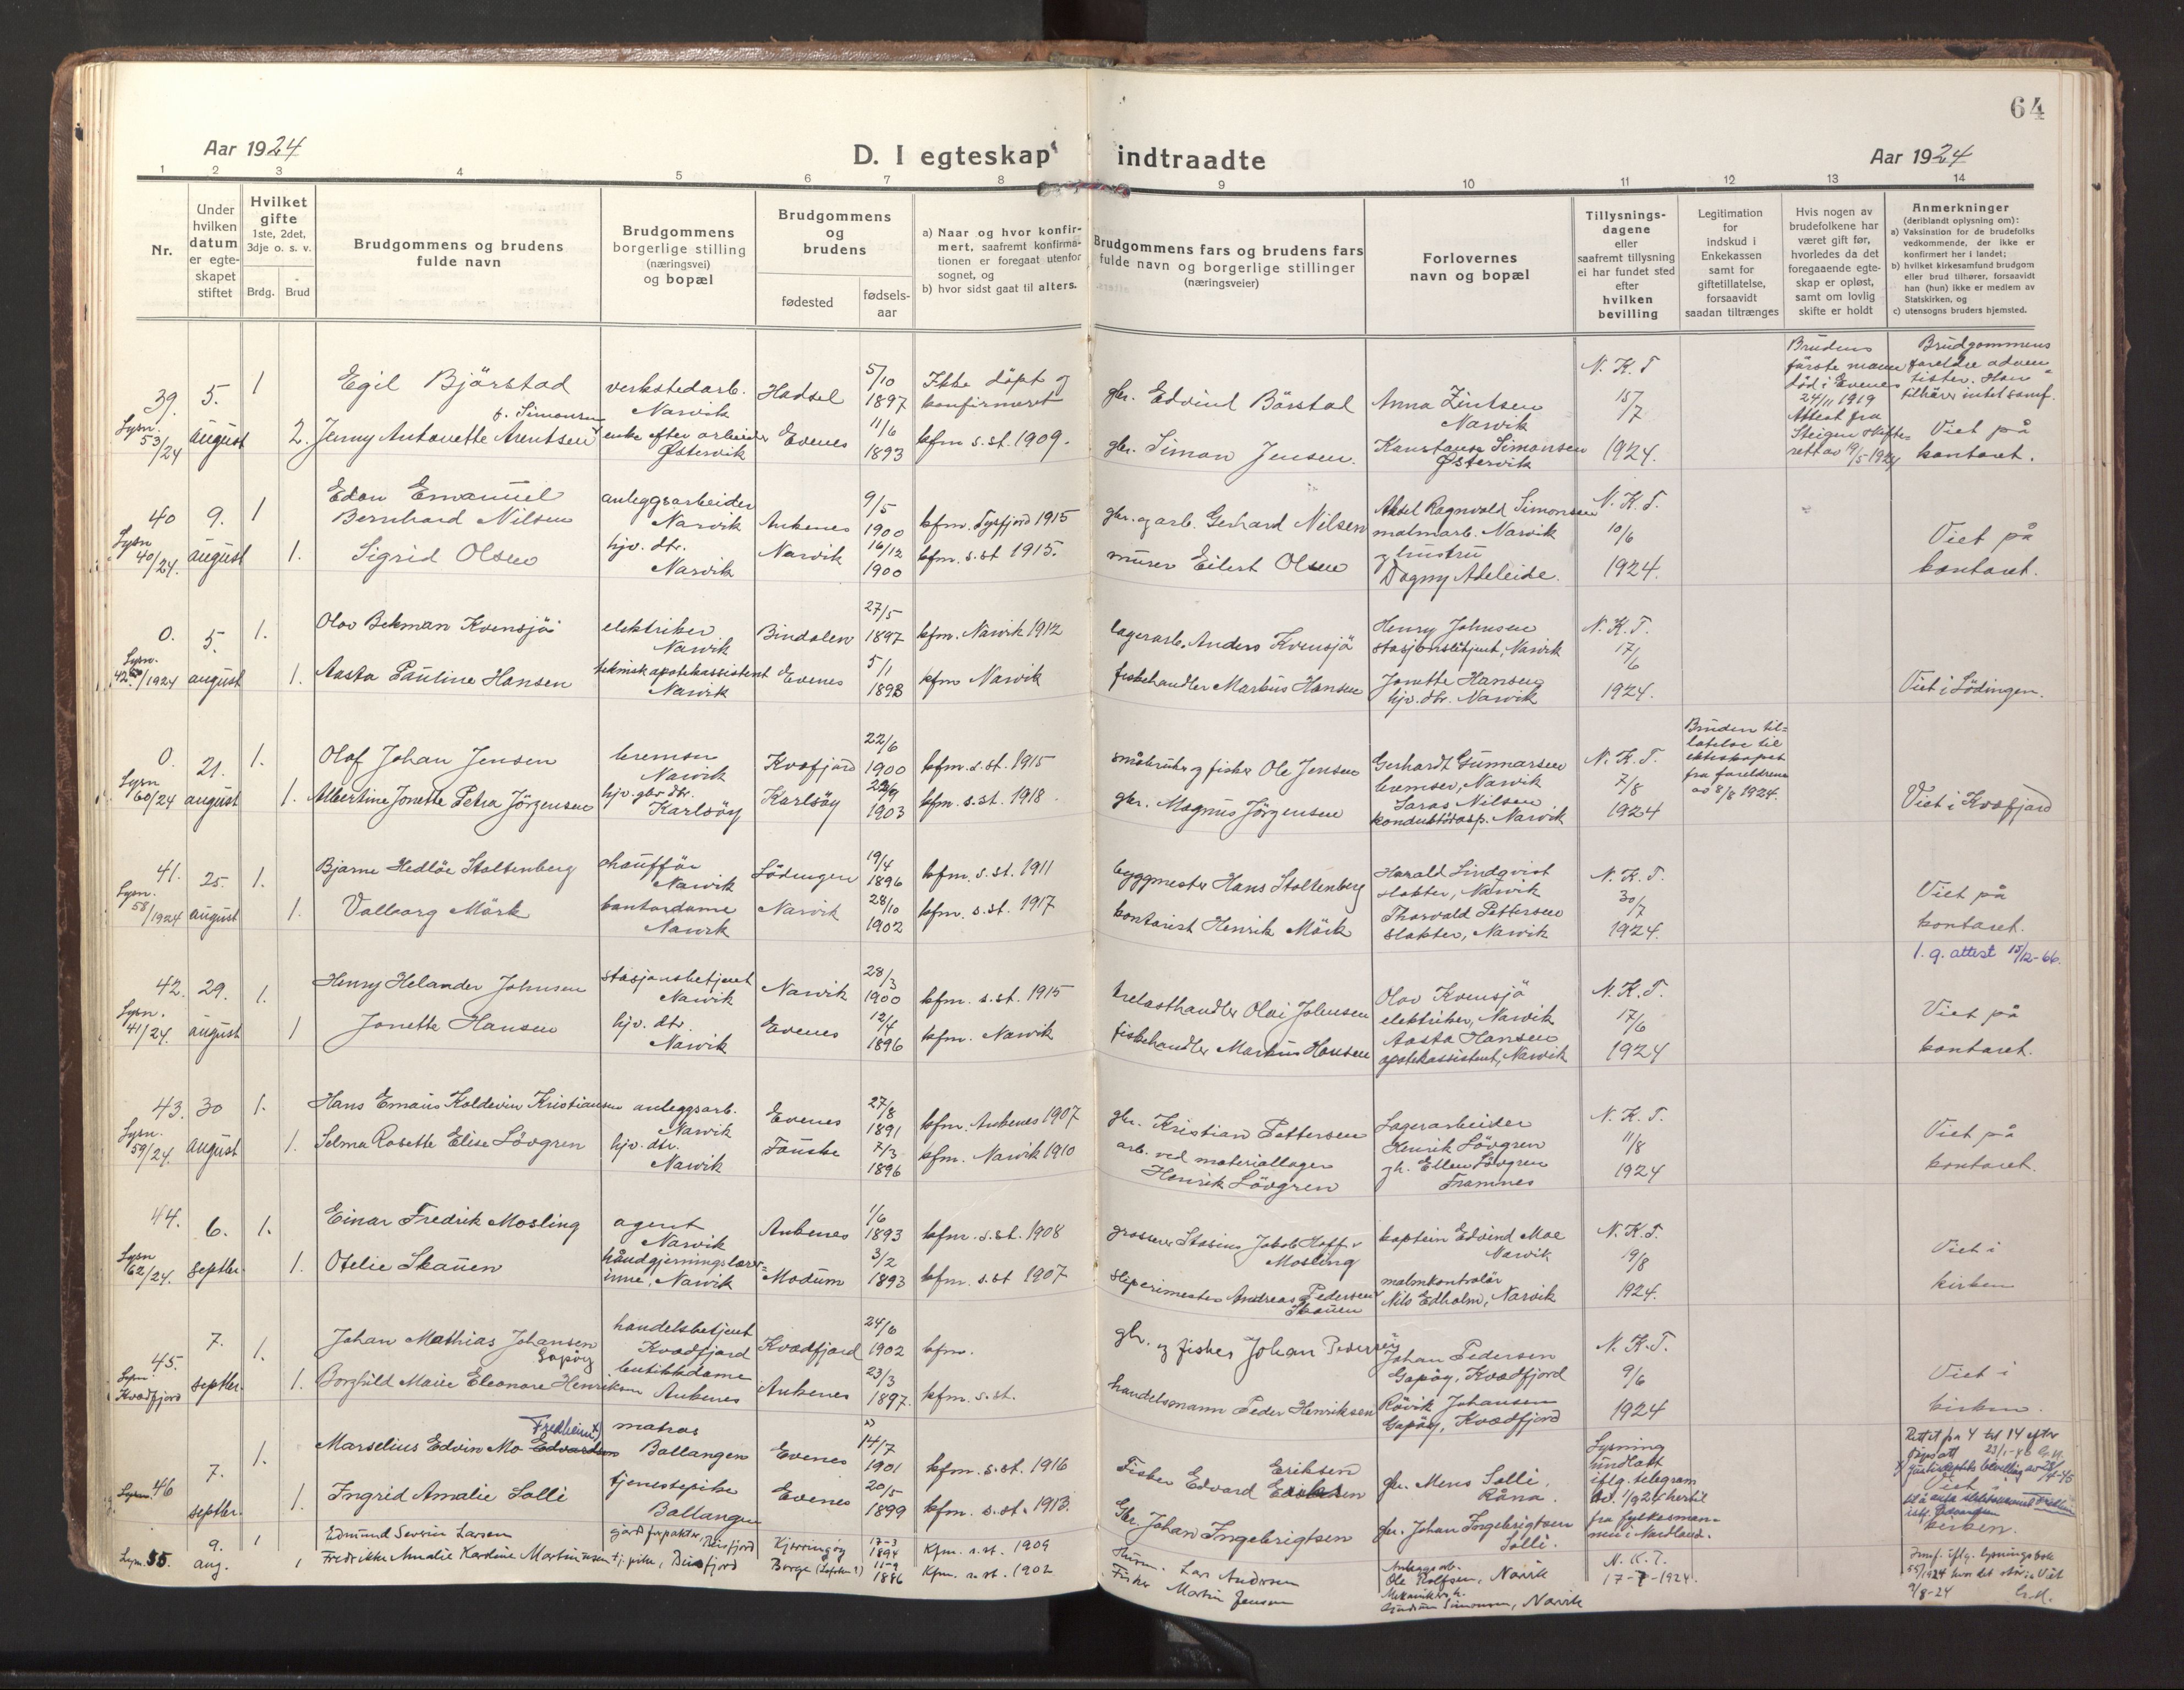 64
Aar 1924
D. I egteskap indtraadte
Aar 1924
1 2 3 4 5 6 7 8 9 10 11 12 13 14
Nr.
Under hvilken datum er egte-skapet stiftet
Hvilket gifte 1ste, 2det, 3dje o. s. v.
Brdg. Brud
Brudgommens og brudens fulde navn
Brudgommens borgerlige stilling (næringsvei) og bopæl
Brudgommens og brudens
fødested
fødsels-aar
a) Naar og hvor konfir-mert, saafremt konfirma-tionen er foregaat utenfor sognet, og
b) hvor sidst gaat til alters.
Brudgommens fars og brudens fars fulde navn og borgerlige stillinger (næringsveier)
Forlovernes navn og bopæl
Tillysnings-dagene eller saafremt tillysning ei har fundet sted efter hvilken bevilling
Legitimation for indskud i Enkekassen samt for giftetillatelse, forsaavidt saadan tiltrænges
Hvis nogen av brudefolkene har været gift før, hvorledes da det foregaaende egte-skap er opløst, samt om lovlig skifte er holdt
Anmerkninger (deriblandt oplysning om):
a) Vaksination for de brudefolks vedkommende, der ikke er konfirmert her i landet;
b) hvilket kirkesamfund brudgom eller brud tilhører, forsaavidt han (hun) ikke er medlem av Statskirken, og
c) utensogns bruders hjemsted.
39. Lysn. 53/24
5. august
1
Egil Björstad
verkstedarb. Narvik
Hadsel
5/10 1897
Ikke döpt og konfirmeret
gbr. Edvind Börstad
Anna Zintsen Narvik
N. K. T. 15/7 1924.
Brudens förste mann död i Evenes 24/11 1919 Attest fra Steigen skifte-rett av 19/5-1924
Brudgommens foreldre adven-tister. Han tilhörer intet samf.
Viet på kontoret.
2. Jenny Antonette Arentsen f. Simonsen
enke efter arbeider Östervik
Evenes
11/6 1893
kfm s. st. 1909.
gbr. Simon Jensen.
Konstanse Simonsen Östervik
40 Lysn 40/24.
9. august
1
Edon Emanuel Bernhard Nilsen
anleggsarbeider Narvik
Ankenes
9/5 1900
kfm. Tysfjord 1915
gbr. og arb. Gerhard Nilsen
Aksel Ragnvald Simonsen malmarb. Narvik
N. K. T. 10/6 1924.
Viet på kontoret.
1. Sigrid Olsen
hjv. dtr. Narvik
Narvik
16/12 1900
kfm. s. st 1915.
murer Eilert Olsen
og hustru Dagny Adeleide.
0. Lysn. 42/1924
5. august
1.
Olav Bekman Kvensjö
elektriker Narvik
Bindalen
27/5 1897
kfm. Narvik 1912
lagerarb. Anders Kvensjö
Henry Johnsen stasjonsbetjent, Narvik
N. K. T. 17/6 1924.
Viet i Lödingen.
1. Aasta Pauline Hansen
teknisk apotekassistent Narvik
Evenes
5/1 1898
kfm Narvik
fiskehandler Markus Hansen
Jonette Hansen hjv. dtr. Narvik
0. Lysn 60/24
21. august
1.
Olaf Johan Jensen
bremser Narvik
Kvæfjord
22/6 1900
kfm. s. st. 1915
småbruker og fisker Ole Jensen
Gerhardt Gunnarsen bremser, Narvik
N. K. T. 7/8 1924
Bruden til-latelse til ekteskapet fra foreldrene av 8/8 1924.
Viet i Kvæfjord
1. Albertine Jonette Petra Jörgensen
hjv. gbr. dtr. Karlsöy
Karlsöy
1903
kfm. s. st. 1918.
gbr. Magnus Jörgensen
Nilsen konduktörasp. Narvik
41. Lysn. 58/1924
25. august
1.
Bjarne Hedlöe Stoltenberg
chaufför Narvik
Lödingen
19/4 1896
kfm. s. st. 1911
byggmester Hans Stoltenberg
Harald Lindqvist slakter, Narvik
N. K. T. 30/7 1924.
Viet på kontoret.
1. g. attest 15/12-66.
1. Valborg Mörk
kontordame Narvik
Narvik
28/10 1902
kfm. s. st. 1917
kontorist Henrik Mörk
Thorvald Pettersen slakter, Narvik
42. Lysn. 41/24.
29. august
1.
Henry Helander Johnsen
stasjonsbetjent Narvik
Narvik
28/3 1900
kfm. s. st. 1915
trelasthandler Olai Johnsen
Olav Kvensjö elektriker, Narvik
N. K. T. 17/6 1924
Viet på kontoret.
1 Jonette Hansen
hjv. dtr. Narvik
Evenes
12/4 1896
kfm. Narvik
fiskehandler Markus Hansen
Aasta Hansen apotekassistent, Narvik
43. Lysn. 59/24.
30 august
1.
Hans Emaus Koldevin Kristiansen
anleggsarb. Narvik
Evenes
27/8 1891
kfm. Ankenes 1907
gbr. Kristian Pettersen
Lagerarbeider Henrik Lövgren
N. K. T. 11/8 1924
Viet på kontoret.
1. Selma Rosette Elise Lövgren
hjv. dtr. Narvik
Fauske
7/3 1896
kfm. Narvik 1910
arb. ved materiallager Henrik Lövgren
og h. Ellen Lövgren Framnes
44. Lysn 62/24.
6. septbr.
1.
Einar Fredrik Mosling
agent Narvik
Ankenes
1/6 1893
kfm. s. st. 1908
grosserer Stasius Jakob Hoff Mosling
kaptein Edvind Moe Narvik
N. K. T. 19/8 1924.
Viet i kirken
1. Otelie Skauen
håndgjerningslærer-inne, Narvik
Modum
3/2 1893
kfm. s. st 1907
sliperimester Andreas Pedersen Skauen
malmkontrolör Nils Edholm, Narvik
45. Lysn. Kvædfjord
7. septbr.
1.
Johan Mathias Johansen Gapöy
handelsbetjent Kvædfjord
Kvædfjord
24/6 1902
kfm.
gbr. og fisker Johan Pedersen
Johan Pedersen Gapöy, Kvædfjord
N. K. T. 9/6 1924
Viet i kirken.
1. Borghild Marie Eleonore Henriksen
butikkdame Ankenes
Ankenes
23/3 1897.
kfm. s. st.
handelsmann Peder Henriksen
Rövik Johansen Gapöy, Kvædfjord
46
7. septbr.
1.
Marselius Edvin Mo Edvardsen Fredheim
matros Ballangen
Evenes
14/7 1901
kfm. s. st. 1916
Fisker Edvard Eriksen
gbr. Mons Solli, Råna.
Lysning undlatt iflg. telegram av 1/9 24 hertil fra fylkesman-nen i Nordland.
Rettet fra 4 til 14 efter
Viet i kirken.
1. Ingrid Amalie Solli
tjenestepike Ballangen
Evenes
20/5 1899
kfm. s. st. 1913.
Gbr. Johan Ingebrigtsen
gbr. Johan Ingebrigtsen Solli.
Lysn. 55.
9. aug.
1
Edmund Severin Larsen
Beisfjord
Kjerringöy
17-3 1894
Kfm. s. st. 1909
Lars Andersen
Anleggsarb. Ole Rolfsen, Narvik
N. K. T. 17-7-1924.
Innf. iflg. lysningsbok 55/1924 hvor det står: Viet 9/8-24
1 Fredrikke Amalie Kardine Martinussen
tj. pike, Beisfjord
Borge (Lofoten?)
11-9 1886
Kfm. s. st. 1902
Fisker Martin Jensen
Gudrun Simonsen, Narvik